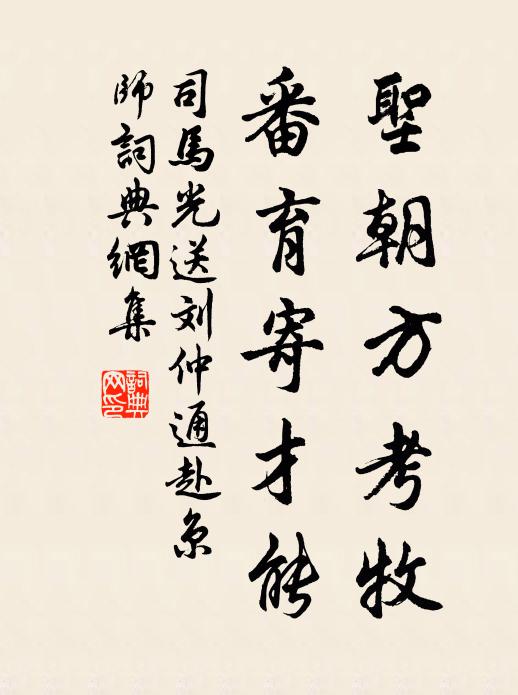 聖朝方考牧
番育寄才能
司馬光送刘仲通赴京
師詞典網集
詞典
网印